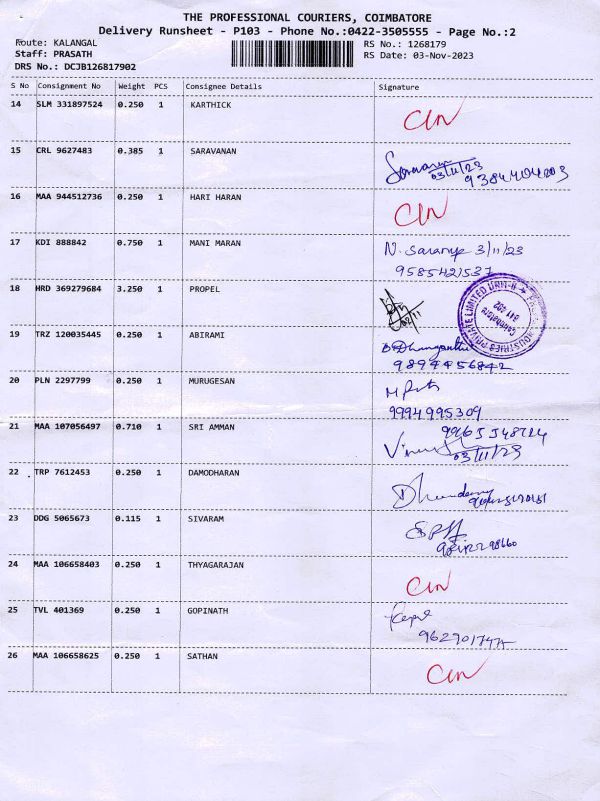 THE PROFESSIONAL COURIERS, COIMBATORE
Delivery Runsheet - P103 - Phone No.:0422-3505555 - Page No.:2
Route: KALANGAL
RS No.: 1268179
Staff: PRASATH
RS Date: 03-Nov-2023
DRS No.: DCJB126817902
S No Consignment No Weight PCS Consignee Details Signature
14 SLM 331897524 0.250 1 KARTHICK
15 CRL 9627483 0.385 1 SARAVANAN
03/11/23
9384404203
16 MAA 944512736 0.250 1 HARI HARAN
17 KDI 888842 0.750 1 MANI MARAN N. Saranya 3/11/23
9585421537
18 HRD 369279684 3.250 1 PROPEL
INDUSTRIES PRIVATE LIMITED UNIT-II
Coimbatore
641 402
19 TRZ 120035445 0.250 1 ABIRAMI
20 PLN 2297799 0.250 1 MURUGESAN
9994995309
21 MAA 107056497 0.710 1 SRI AMMAN
03/11/23
22 TRP 7612453 0.250 1 DAMODHARAN
23 DDG 5065673 0.115 1 SIVARAM
24 MAA 106658403 0.250 1 THYAGARAJAN
25 TVL 401369 0.250 1 GOPINATH
26 MAA 106658625 0.250 1 SATHAN